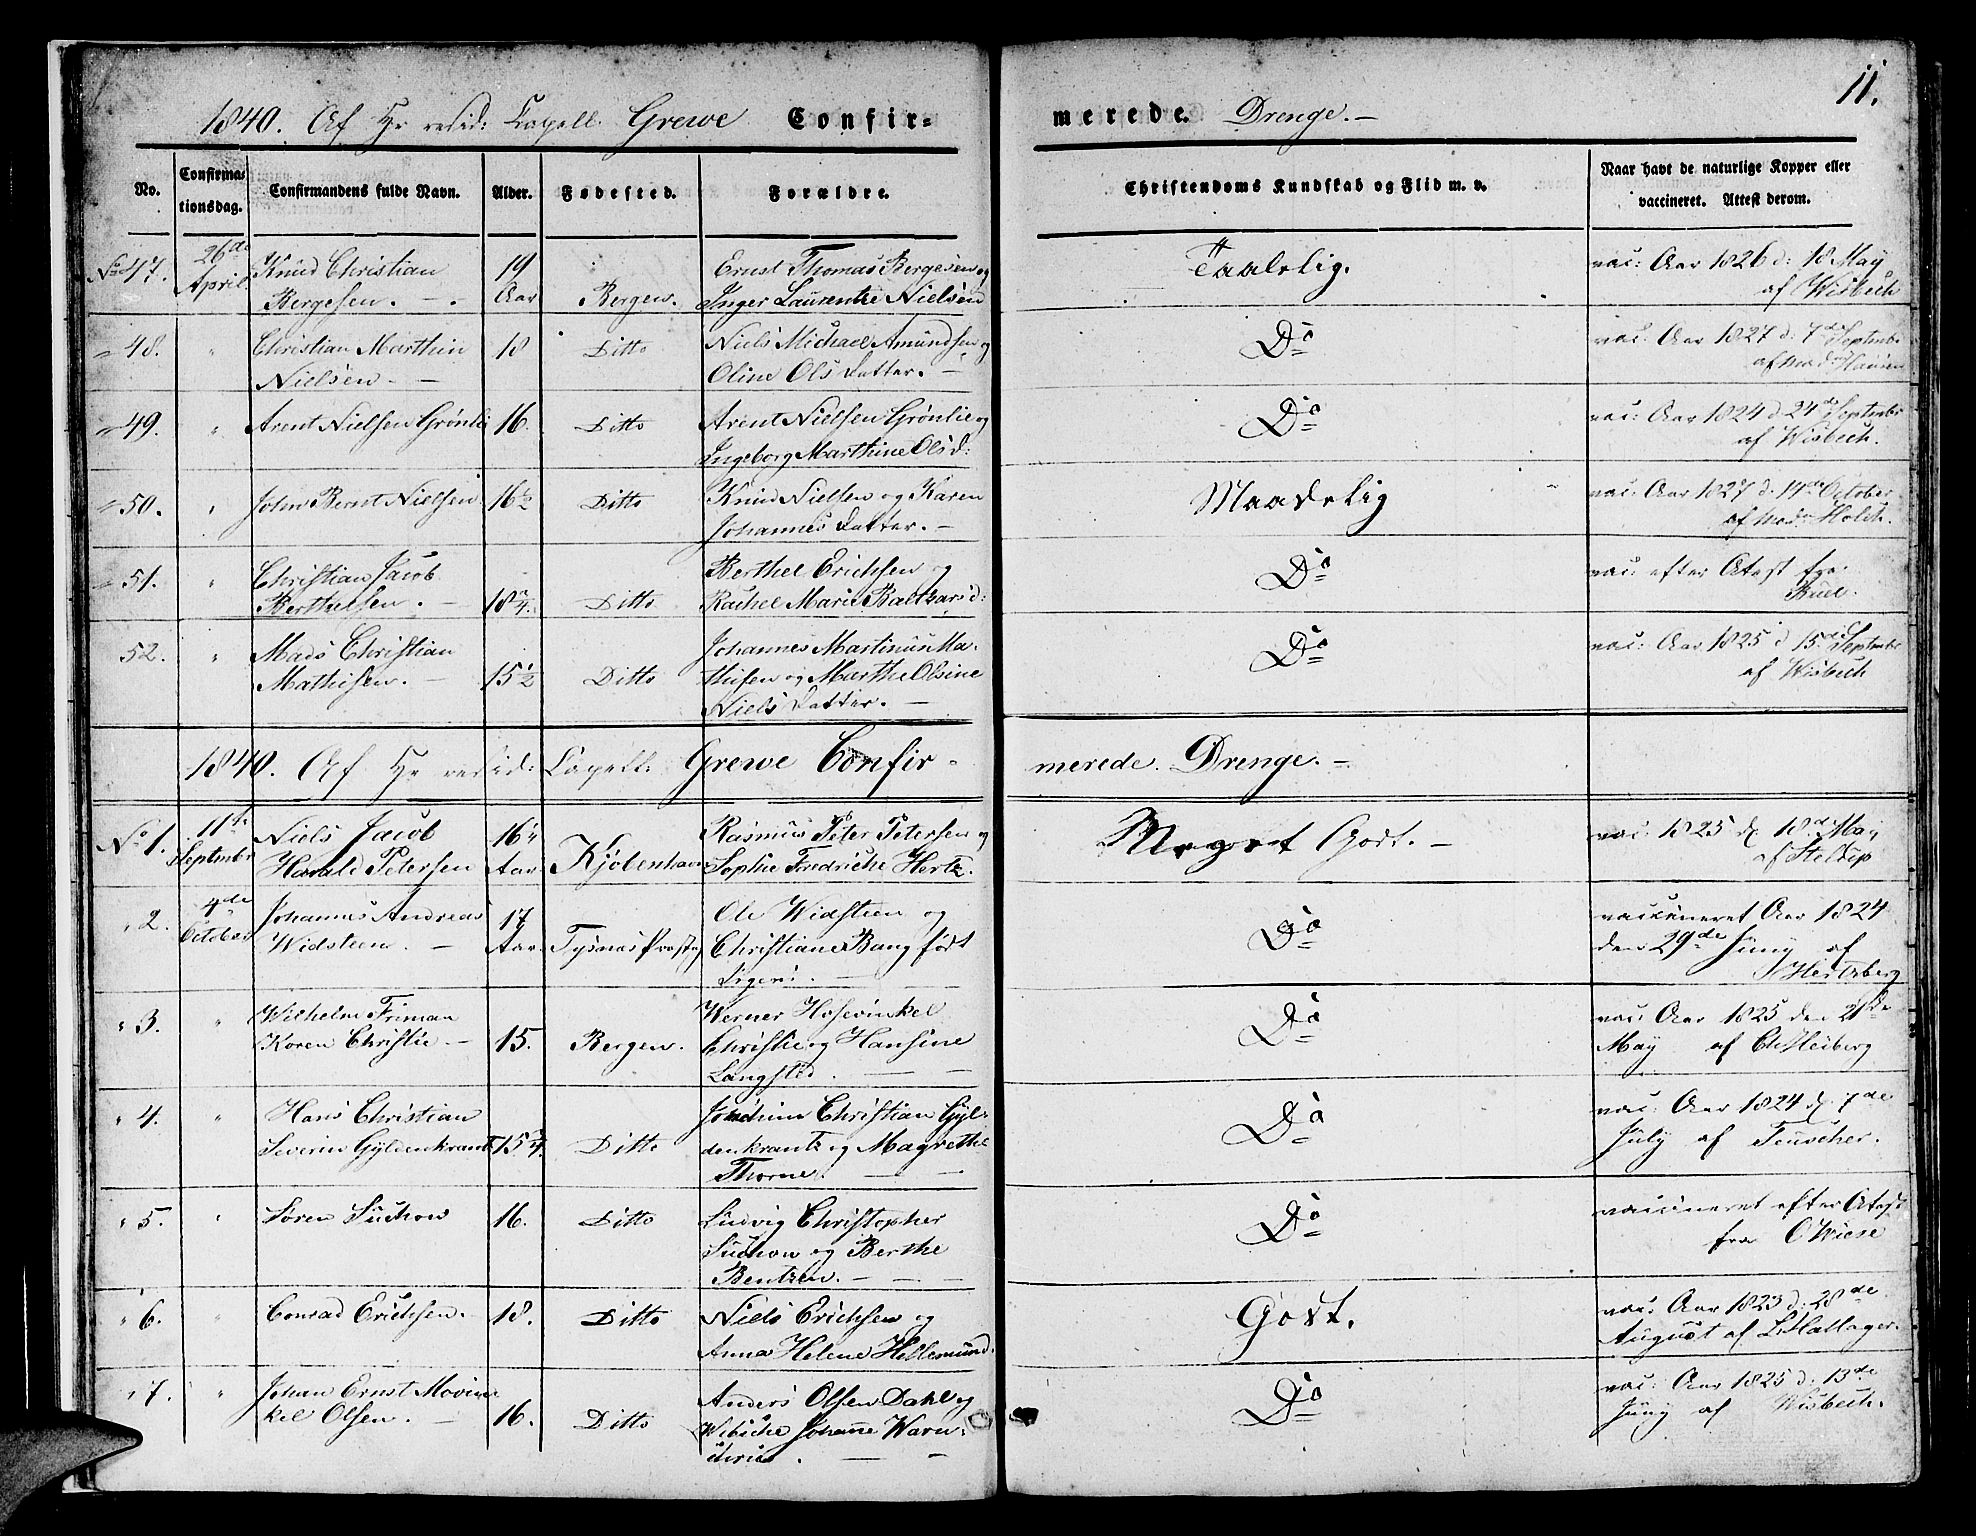 11.
1840. Af Hr resid: Capell. Grewe Confir- merede. Drenge. —
No. Confirmationsdag. Confirmandens fulde Navn. Alder. Fødested. Forældre. Christendoms Kundskab og Flid m. v. Naar havt de naturlige Kopper eller vaccineret. Attest derom.
No 47. 26de April Knud Christian Bergesen. — 19 Aar Bergen. Ernst Thomas Bergesen og Inger Laurentze Nielsen Taalelig. vac: Aar 1826 d: 18 May af Wisbech
" 48. " Christian Marthin Nielsen. — 18 Ditto Niels Michael Amundsen og Oline Ols Datter. — Do vac. Aar 1827 d. 7de Septembr af Mad: Hansen
" 49. " Arent Nielsen Grønlie 16. Ditto Arent Nielsen Grønlie og Ingeborg Marthine Olsd: Do vac: Aar 1824 d 24de Septembr af Wisbech.
" 50. " John Bernt Nielsen 16½ Ditto Knud Nielsen og Karen Johannes Datter. — Maadelig vac: Aar 1827 d. 14de October af Mad: Holch.
" 51. " Christian Jacob Berthelsen. — 18¾. Ditto Berthel Erichsen og Rachel Marie Baltzarsd: Do vac: efter Atest fra Buel.
52. " Mads Christian Mathisen. — 15½ Ditto Johannes Martinus Mathisen og Marthe Olsine Niels Datter. — Do vac: Aar 1825 d 15de Septembr af Wisbech
1840. Af Hr resid: Capell: Grewe Confir- merede. Drenge. —
No 1. 11te Septembr Niels Jacob Harald Petersen 16¼ Aar Kjøbenhavn Rasmus Peter Petersen og Sophie Fredriche Hertz. Meget Godt. — vac: 1825 d. 18de May af Steltup
" 2. 4de October Johannes Andreas Widsteen. — 17 Aar Tysnæs Præstg Ole Widsteen og Christiane Bang født Do vaccineret Aar 1824 den 29de Juny af Hertzberg
" 3. " Wilhelm Friman Koren Christie — 15. Bergen. Werner Hosevinkel Christie og Hansine Langsted. — Do vac: Aar 1825 den 21de May af Ch Heiberg
" 4. " Hans Christian Severin Gyldenkrantz 15¾. Ditto Jochim Christian Gyldenkrantz og Magrethe Thorne. — Do vac: Aar 1824 d. 7de July af Teuscher.
" 5. " Søren Suchow 16. Ditto Ludvig Christopher Suchow og Berthe Bentzen. — Do vaccineret efter Atest fra O Wiese
" 6. " Conrad Erichsen. 18. Ditto Niels Erichsen og Anna Helene Hellemund. Godt. vac. Aar 1823 d: 28de August af L Hallager.
" 7. " Johan Ernst Mowinckel Olsen. — 16. Ditto Anders Olsen Dahl og Wibiche Johanne Do vac: Aar 1825 d: 13de Juny af Wisbech.